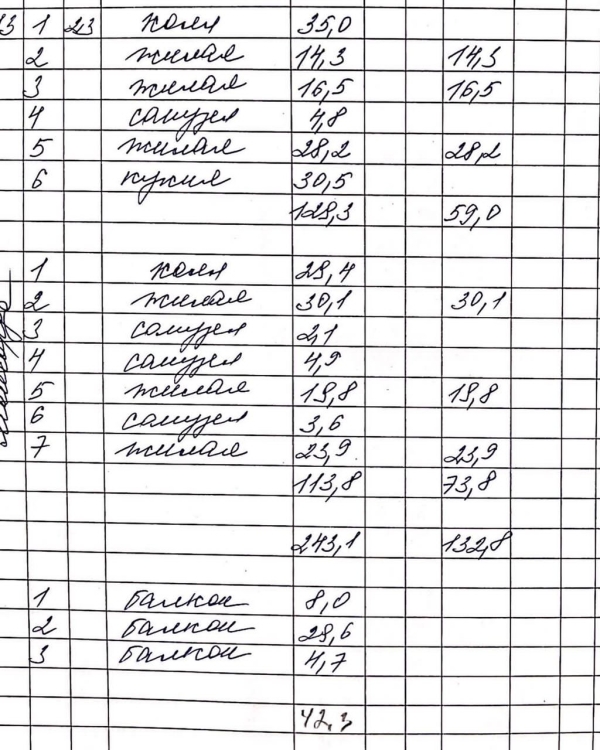 1 23 холл 35,0
2 жилая 14,3 14,3
3 жилая 16,5 16,5
4 санузел 4,8
5 жилая 28,2 28,2
6 кухня 30,5
129,3 59,0
1 холл 29,4
2 жилая 30,1 30,1
3 санузел 2,1
4 санузел 4,9
5 жилая 19,8 19,8
6 санузел 3,6
7 жилая 23,9 23,9
113,8 73,8
243,1 132,8
1 балкон 8,0
2 балкон 29,6
3 балкон 4,7
42,3